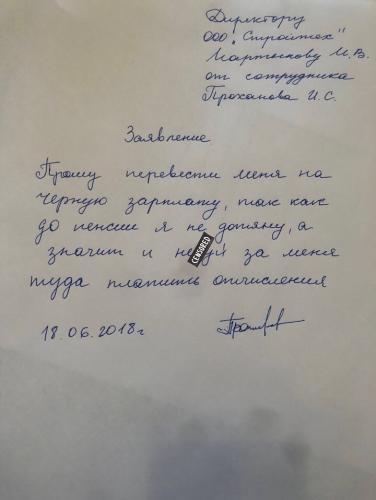 Директору
ООО "Стройтех"
Мартынову М.В.
от сотрудника
Проханова И.С.
Заявление
Прошу перевести меня на
черную зарплату, так как
до пенсии я не дотяну, а
значит и за меня
туда платить отчисления
18.06.2018г
CENSORED